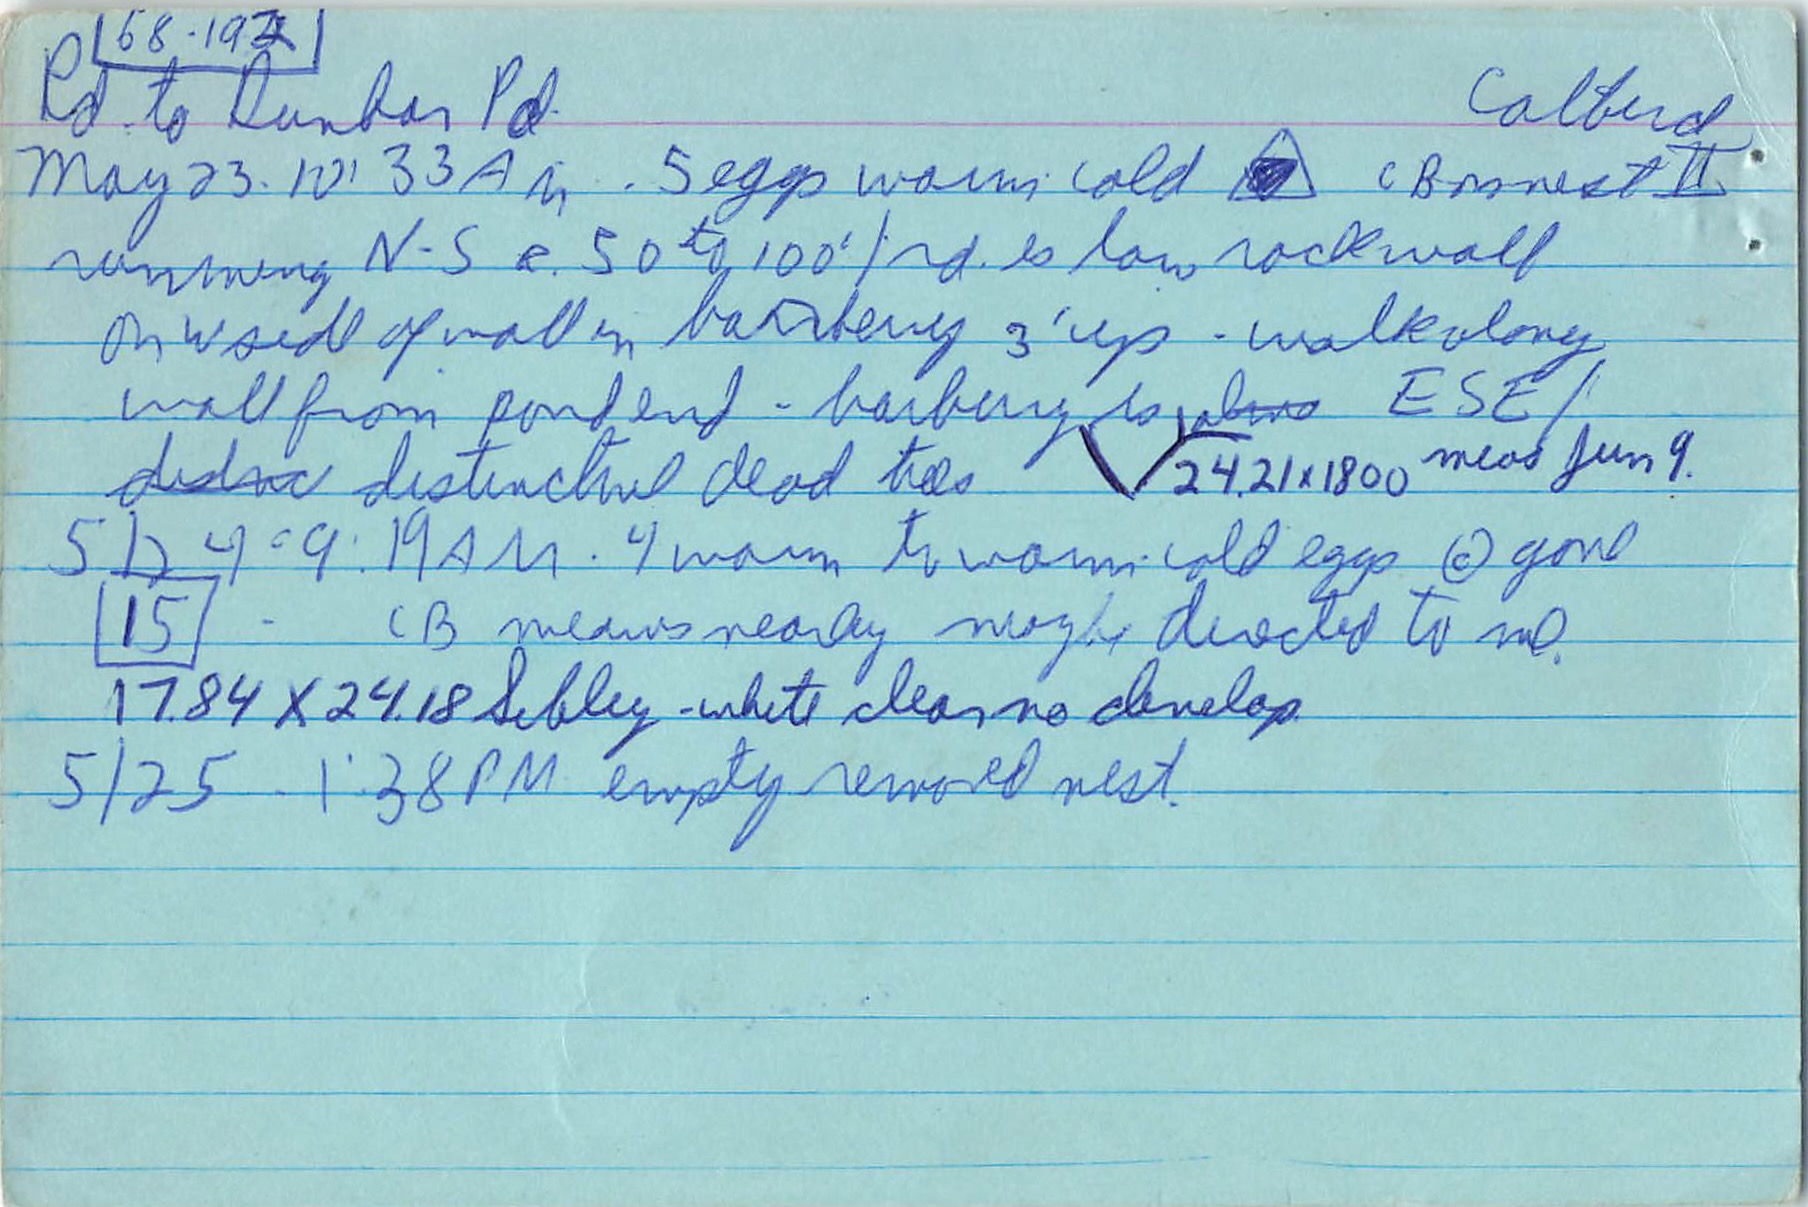 68-192
Rd. to Dunbar Pd. Catbird
May 23. 10:33 AM. 5 eggs warm cold CB on nest II
running N-S e. 50 to 100'/rd. is low rock wall
on W side of wall in barberry 3' up - walk along
wall from pond end - barberry is ESE/
distinctive dead trees 24.21 x 1800 meas Jun 9.
5/24 - 9:19 AM. 4 warm to warm-cold eggs © gone
15 - CB mews nearby directed to me.
17.84 X 24.18 Sibley - white clear no develop.
5/25 - 1:38 PM empty removed nest.